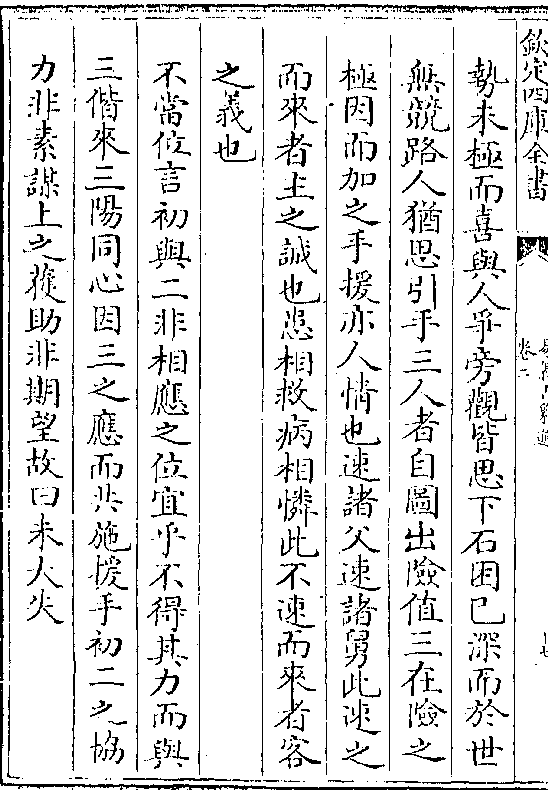 欽定四庫全書
卷二
勢未極而喜與人爭旁觀皆思下石困已深而於世
無競路人猶思引手三人者自圖出險值三在險之
極因而加之手援亦人情也速諸父速諸舅此速之
而來者主之誠也患相救病相憐此不速而來者客
之義也
不當位言初與二非相應之位宜乎不得其力而與
三偕來三陽同心因三之應而共施援手初二之協
力非素謀上之獲助非期望故曰未大失